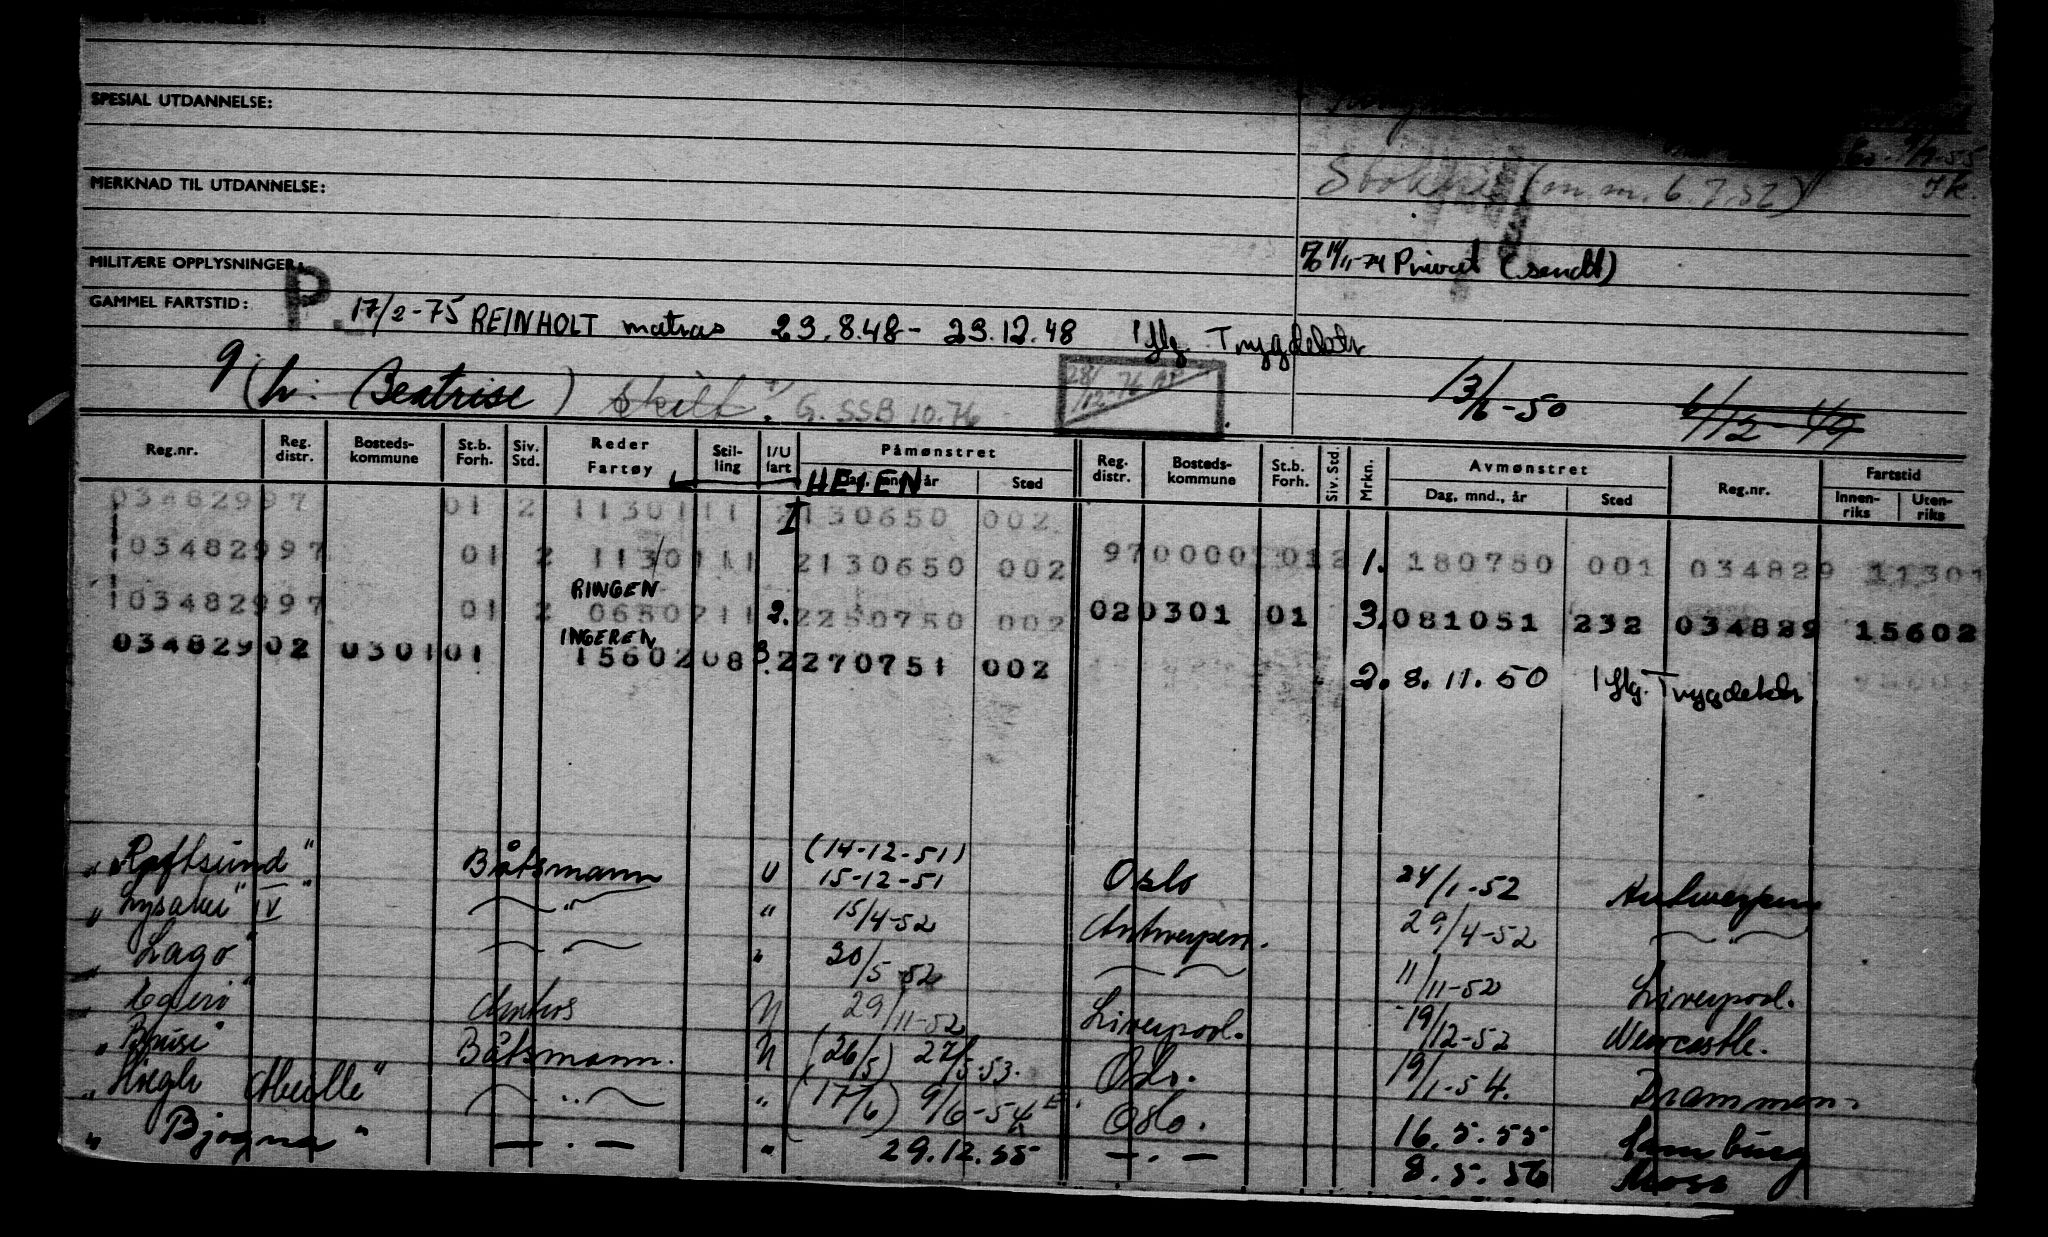 SPESIAL UTDANNELSE:
(m.m. 6.7.52)
MERKNAD TIL UTDANNELSE:
MILITÆRE OPPLYSNINGER:
14/11-74 Privat (sendt)
GAMMEL FARTSTID:
P. 17/2-75 REINHOLT matros 23.8.48 - 23.12.48 iflg. Trygdektr
g (h: Beatrise) G. SSB 10.76
28/12-76
13/6-50 6/12-49
Reg.nr. Reg. distr. Bosteds-kommune St.b. Forh. Siv. Std. Reder Fartøy Stil-ling I/U fart Påmønstret Dag, mnd., år Sted Reg. distr. Bosteds-kommune St.b. Forh. Siv. Std. Mrkn. Avmønstret Dag, mnd., år Sted Reg.nr. Fartstid Innen-riks Uten-riks
HELEN
034829 97 01 2 1130111 I 2130650 002
1034829 97 01 2 1130111 2130650 002 970000 01 2 1. 180750 001 034829 11301
RINGEN
1034829 97 01 2 0650211 2. 2250750 002 020301 01 3. 081051 232 034829 15602
INGEREN
034829 02 0301 01 15602 08 3. 2270751 002 2. 8.11.50 iflg. Trygdektr
(14-12-51)
"Raftsund" Båtsmann U 15-12-51 Oslo 24/1-52 Antwerpen
"Lysaker" IV " " 15/4-52 Antwerpen. 29/4-52 "
"Lago" " " 20/5 52 " 11/11-52 Liverpool.
U 29/11-52 Liverpool. 19/12-52 Newcastle.
Båtsmann. U (26/5) 27/5-53. Oslo. 19/1-54. Drammen.
" " (17/6) 9/6-54 Oslo. 16.5.55 Hamburg
"Bjogna" — . — " 29.12.55 — . — 8.5.56 Moss